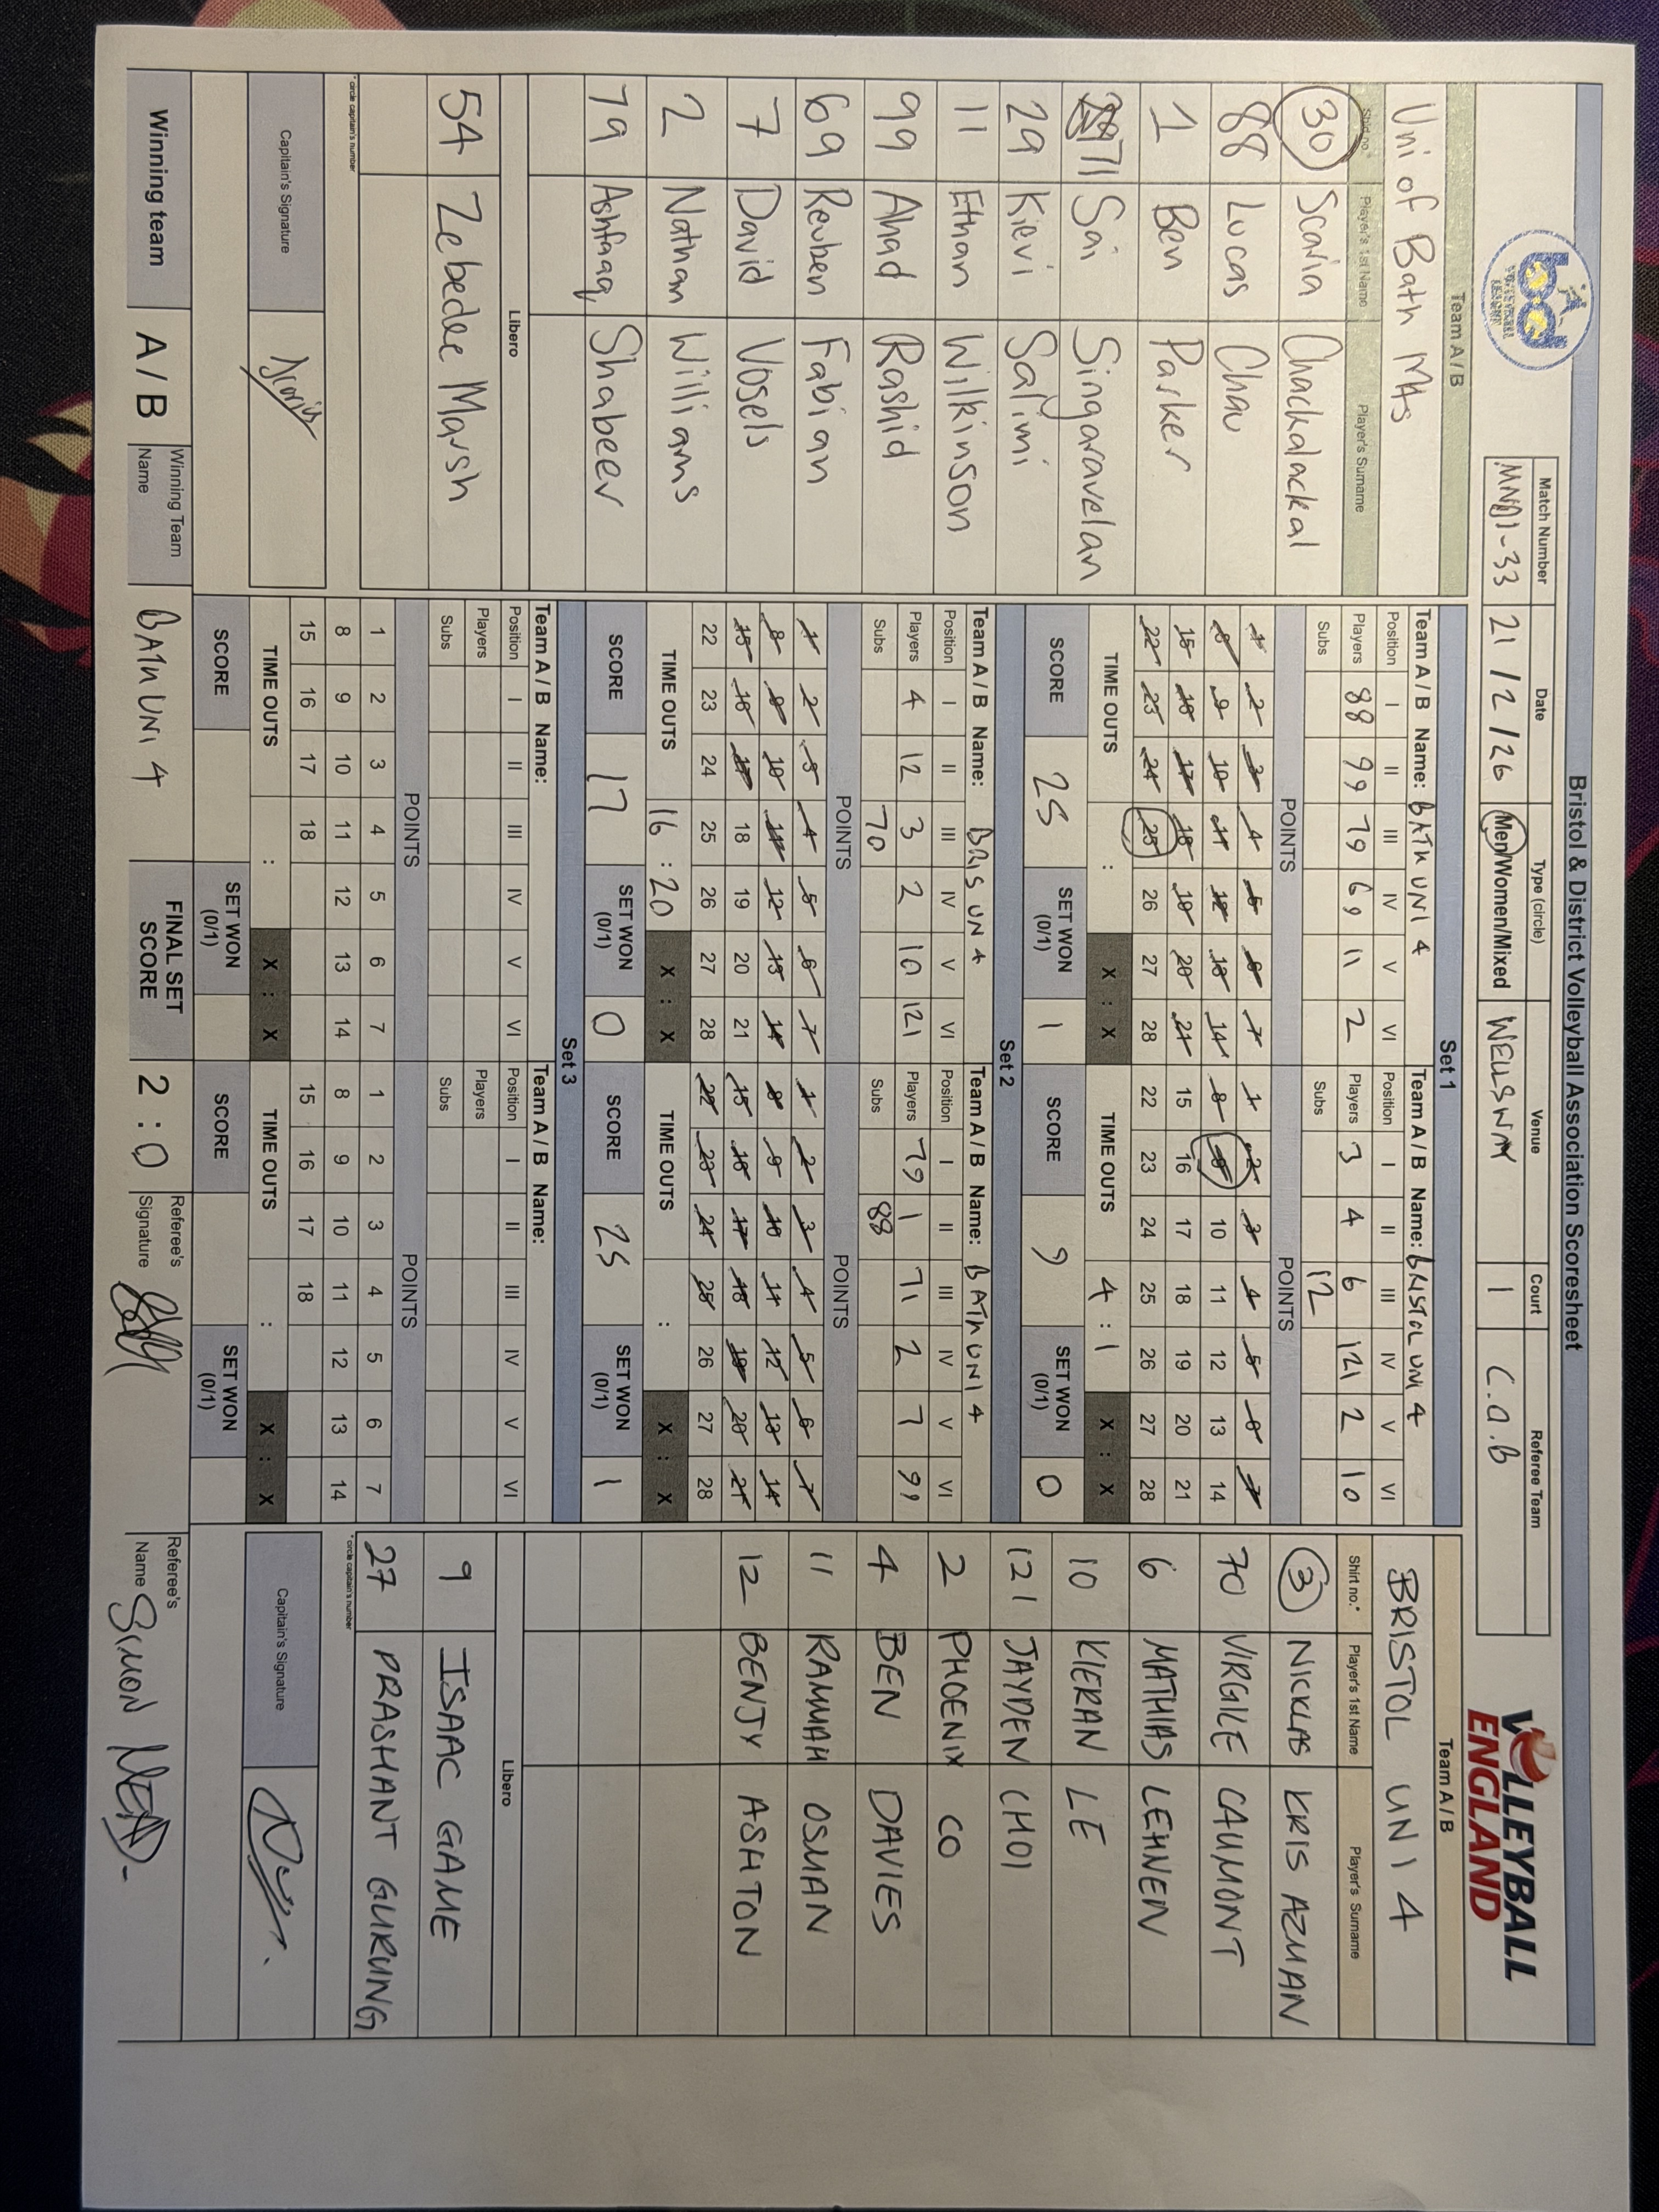 Bristol & District Volleyball Association Scoresheet
Match Number Date Type (circle) Venue Court Referee Team
MND1-33 21/2/26 Men/Women/Mixed WELLSWAY 1 C.O.B
VOLLEYBALL
ENGLAND
Team A / B
Uni of Bath M4s
Shirt no.* Player's 1st Name Player's Surname
30 Scaria Chackalackal
88 Lucas Chau
1 Ben Parker
71 Sai Singaravelan
29 Kievi Salimi
11 Ethan Wilkinson
99 Ahad Rashid
69 Reuben Fabian
7 David Vosels
2 Nathan Williams
79 Ashfaq Shabeer
Libero
54 Zebedee Marsh
* circle captain's number
Capitain's Signature
Set 1
Team A / B Name: BATH UNI 4
Position I II III IV V VI
Players 88 99 79 69 11 2
Subs
POINTS
1 2 3 4 5 6 7
8 9 10 11 12 13 14
15 16 17 18 19 20 21
22 23 24 25 26 27 28
TIME OUTS : X : X
SCORE 25 SET WON (0/1) 1
Team A / B Name: BRISTOL UNI 4
Position I II III IV V VI
Players 3 4 6 121 2 10
Subs 12
POINTS
1 2 3 4 5 6 7
8 9 10 11 12 13 14
15 16 17 18 19 20 21
22 23 24 25 26 27 28
TIME OUTS 4 : 1 X : X
SCORE 9 SET WON (0/1) 0
Set 2
Team A / B Name: BRIS UN 4
Position I II III IV V VI
Players 4 12 3 2 10 121
Subs 70
POINTS
1 2 3 4 5 6 7
8 9 10 11 12 13 14
15 16 17 18 19 20 21
22 23 24 25 26 27 28
TIME OUTS 16 : 20 X : X
SCORE 17 SET WON (0/1) 0
Team A / B Name: BATH UNI 4
Position I II III IV V VI
Players 79 1 71 2 7 99
Subs 88
POINTS
1 2 3 4 5 6 7
8 9 10 11 12 13 14
15 16 17 18 19 20 21
22 23 24 25 26 27 28
TIME OUTS : X : X
SCORE 25 SET WON (0/1) 1
Set 3
Team A / B Name:
Position I II III IV V VI
Players
Subs
POINTS
1 2 3 4 5 6 7
8 9 10 11 12 13 14
15 16 17 18
TIME OUTS : X : X
SCORE SET WON (0/1)
Team A / B Name:
Position I II III IV V VI
Players
Subs
POINTS
1 2 3 4 5 6 7
8 9 10 11 12 13 14
15 16 17 18
TIME OUTS : X : X
SCORE SET WON (0/1)
Team A / B
BRISTOL UNI 4
Shirt no.* Player's 1st Name Player's Surname
3 NICKLAS KRIS AZMAN
70 VIRGILE CAUMONT
6 MATHIAS LEHNEN
10 KIERAN LE
121 JAYDEN CHOI
2 PHOENIX CO
4 BEN DAVIES
11 RAMMAH OSMAN
12 BENJY ASHTON
Libero
9 ISAAC GAME
27 PRASHANT GURUNG
* circle captain's number
Capitain's Signature
Winning team A / B Winning Team Name BATH UNI 4 FINAL SET SCORE 2 : 0 Referee's Signature Referee's Name SIMON MEAD